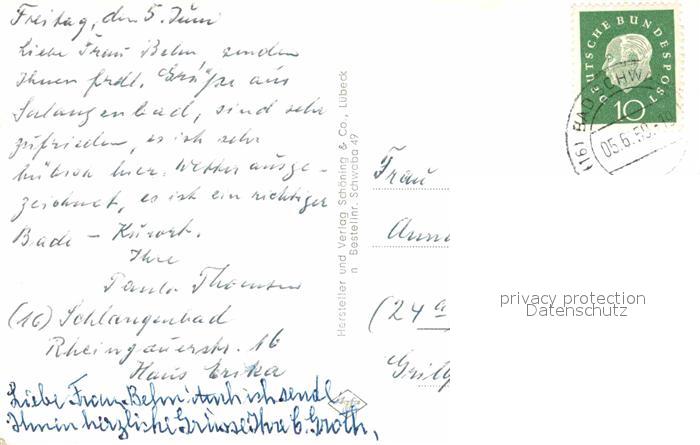 Freitag, den 5. Juni
Liebe Frau Behn senden
Ihnen frdl. Grüße aus
Salangenbad, sind sehr
zufrieden, es ist sehr
hübsch hier. Wetter ausge-
zeichnet, es ist ein richtiger
Bade - Kurort.
Ihre
Paula Thomsen
(16) Schlangenbad
Rheingauerstr. 16
Haus Erika
Liebe Frau Behn! Auch ich sende
Ihnen herzliche Grüsse Ihre C. Groth,
Hersteller und Verlag Schöning & Co., Lübeck
n Bestellnr. Schwaba 49
DEUTSCHE BUNDESPOST
10
(16) BAD SCHW
05.6.59.-10
Frau
Anna
(24a
privacy protection
Datenschutz